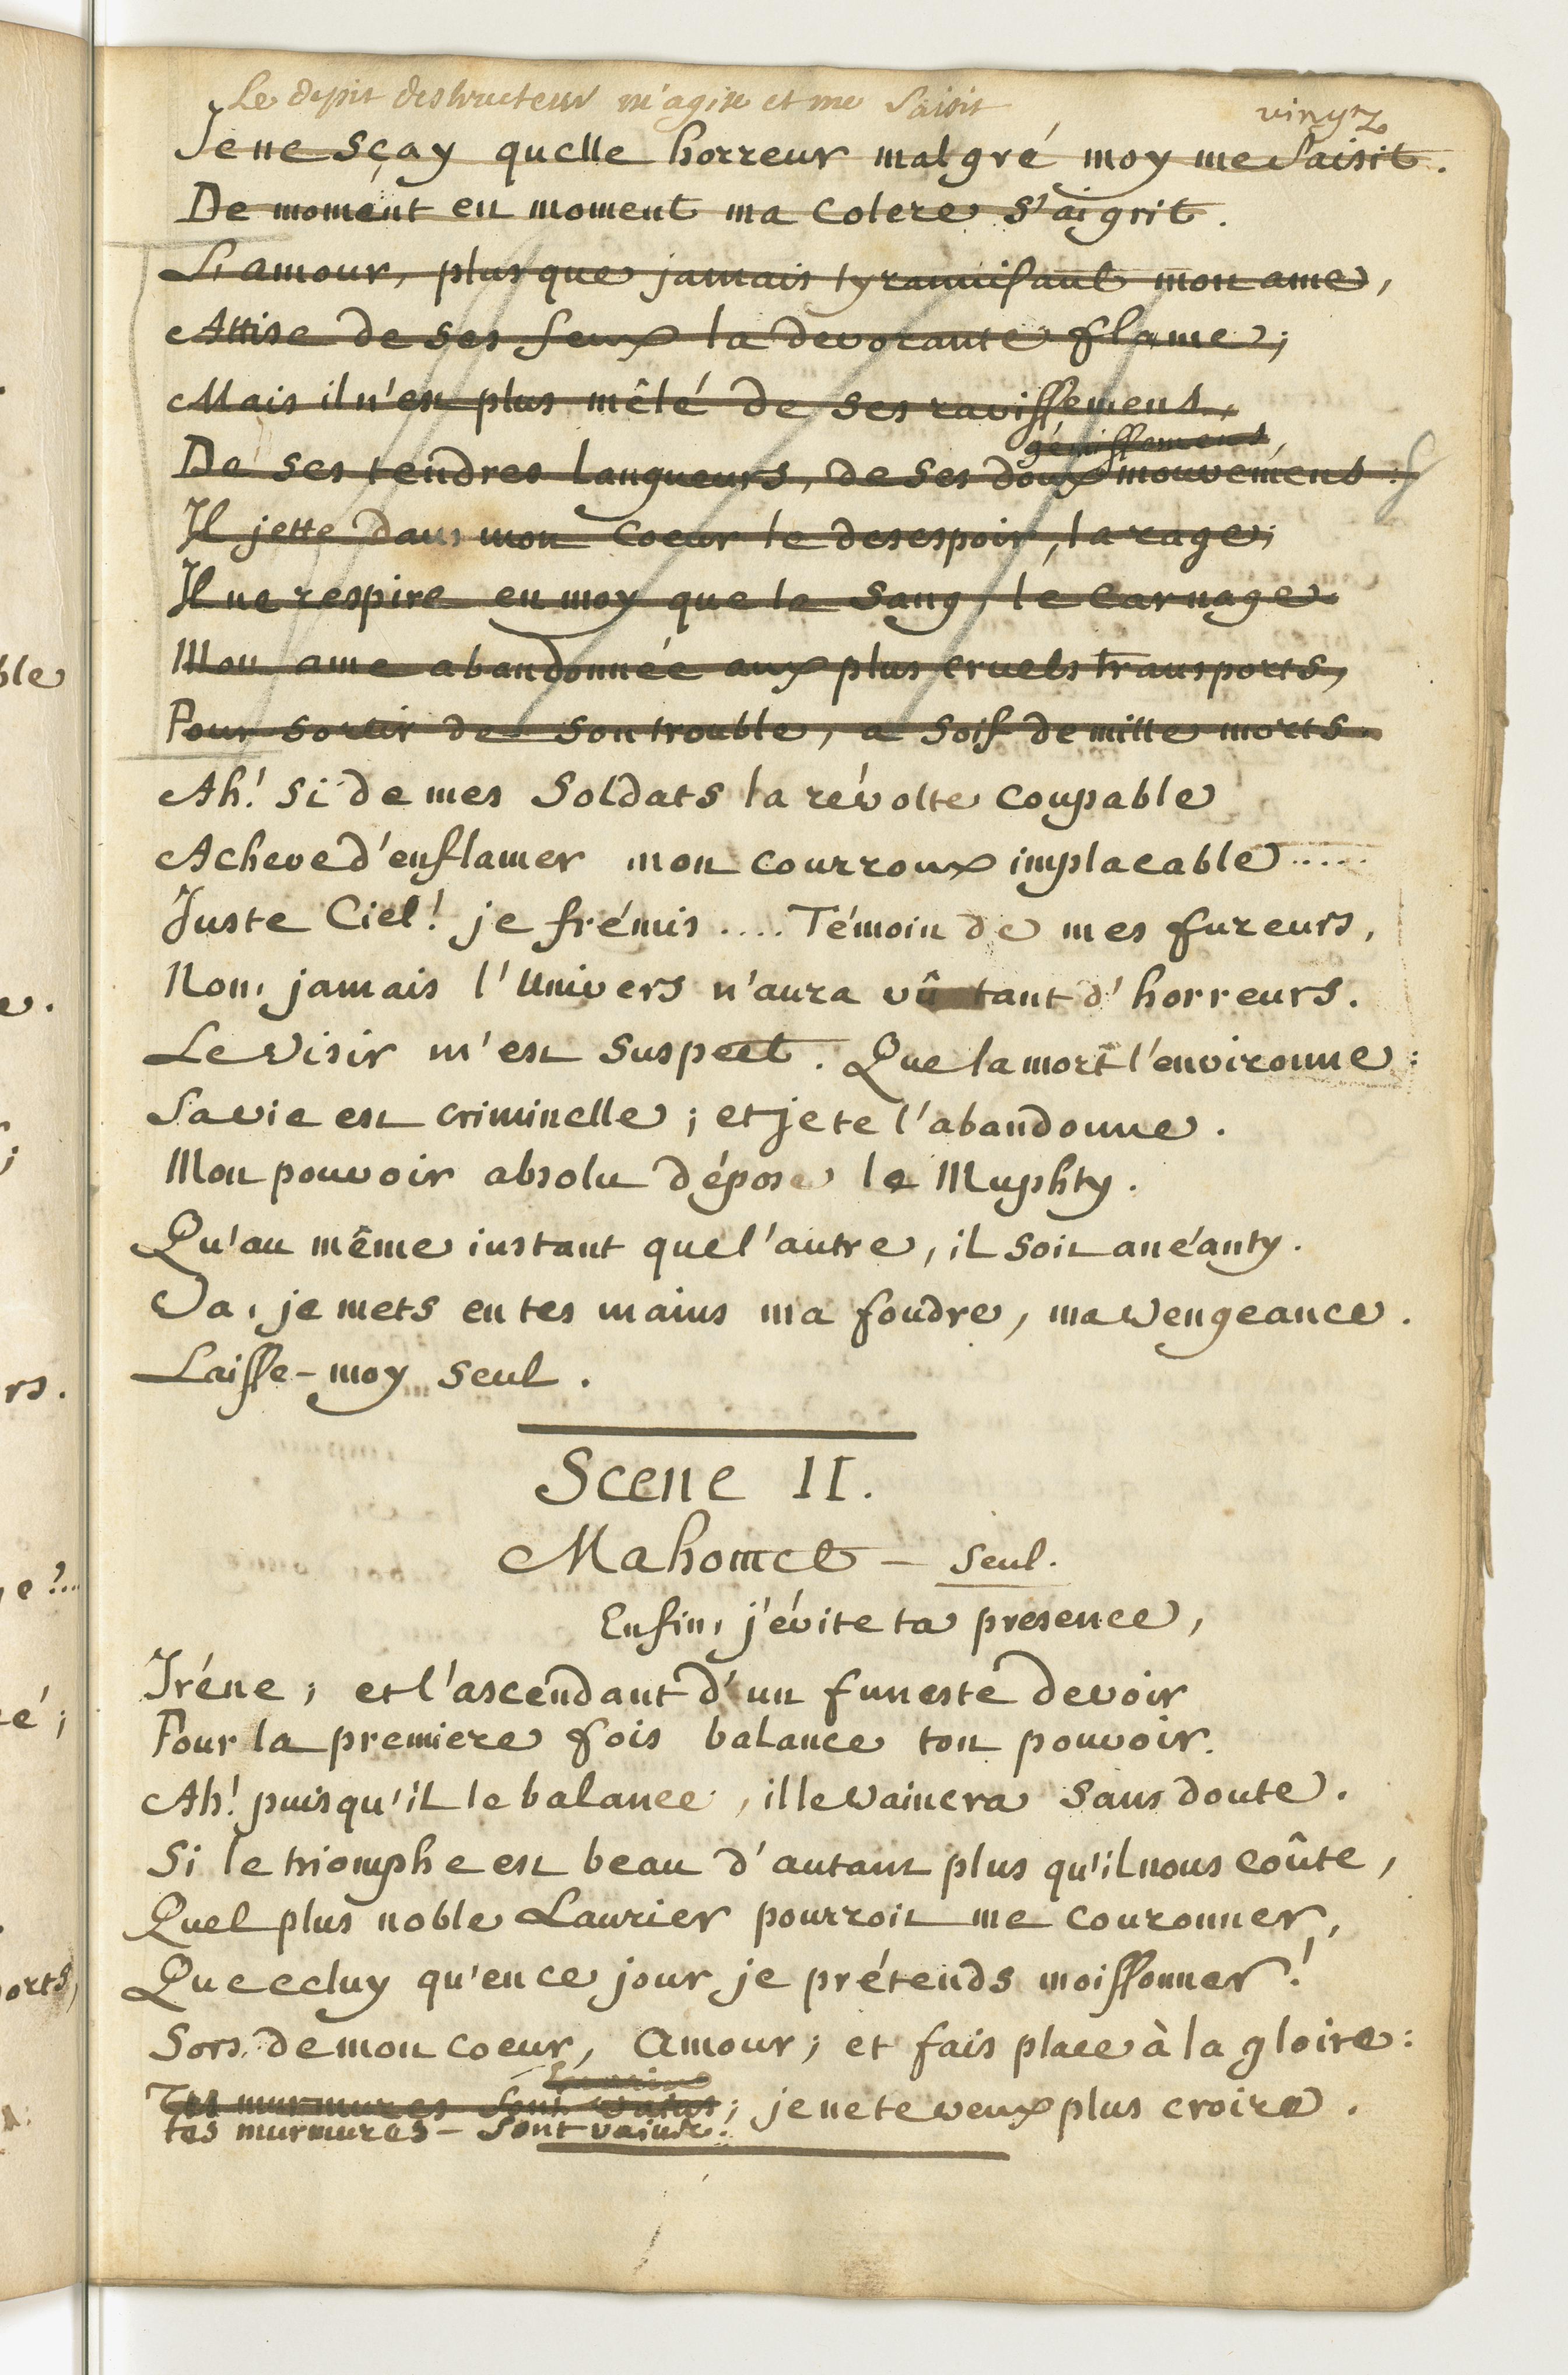 Le depit destructeur m'agite et me Saisit
Je ne sçay quelle horreur malgré moy me Saisit.
De moment en moment ma Colere s'aigrit.
L'amour, plus que jamais tyrannisant mon ame,
Attise de ses feux la devorante flame;
Mais il n'est plus mêlé de ses ravissemens,
gémissemens,
De ses tendres langueurs, de ses doux mouvemens :
Il jette dans mon Coeur le desespoir, la rage;
Il ne respire en moy que le Sang, le Carnage.
Mon ame abandonnée aux plus cruels transports,
Pour sortir de son trouble, a soif de mille morts.
Ah! si de mes Soldats la révolte coupable
Acheve d'enflamer mon courroux implacable .....
Juste Ciel! je frémis .... Témoin de mes fureurs,
Non, jamais l'Univers n'aura vû tant d'horreurs.
Le Visir m'est suspect. Que la mort l'environne :
Sa vie est criminelle; et je te l'abandonne.
Mon pouvoir absolu dépose le Muphty.
Qu'au même instant que l'autre, il soit anéanty.
Va, je mets en tes mains ma foudre, ma Vengeance.
Laisse-moy seul.
Scene II.
Mahomet - seul.
Enfin, j'évite ta presence,
Iréne; et l'ascendant d'un funeste devoir
Pour la premiere fois balance ton pouvoir.
Ah! puisqu'il le balance, il le Vaincra sans doute.
Si le triomphe est beau d'autant plus qu'il nous coûte,
Quel plus noble Laurier pourroit me couronner,
Que celuy qu'en ce jour je prétends moissonner!
Sors de mon coeur, Amour; et fais place à la gloire :
Tes murmures sont vains; je ne te veux plus croire.
tes murmures - sont vains